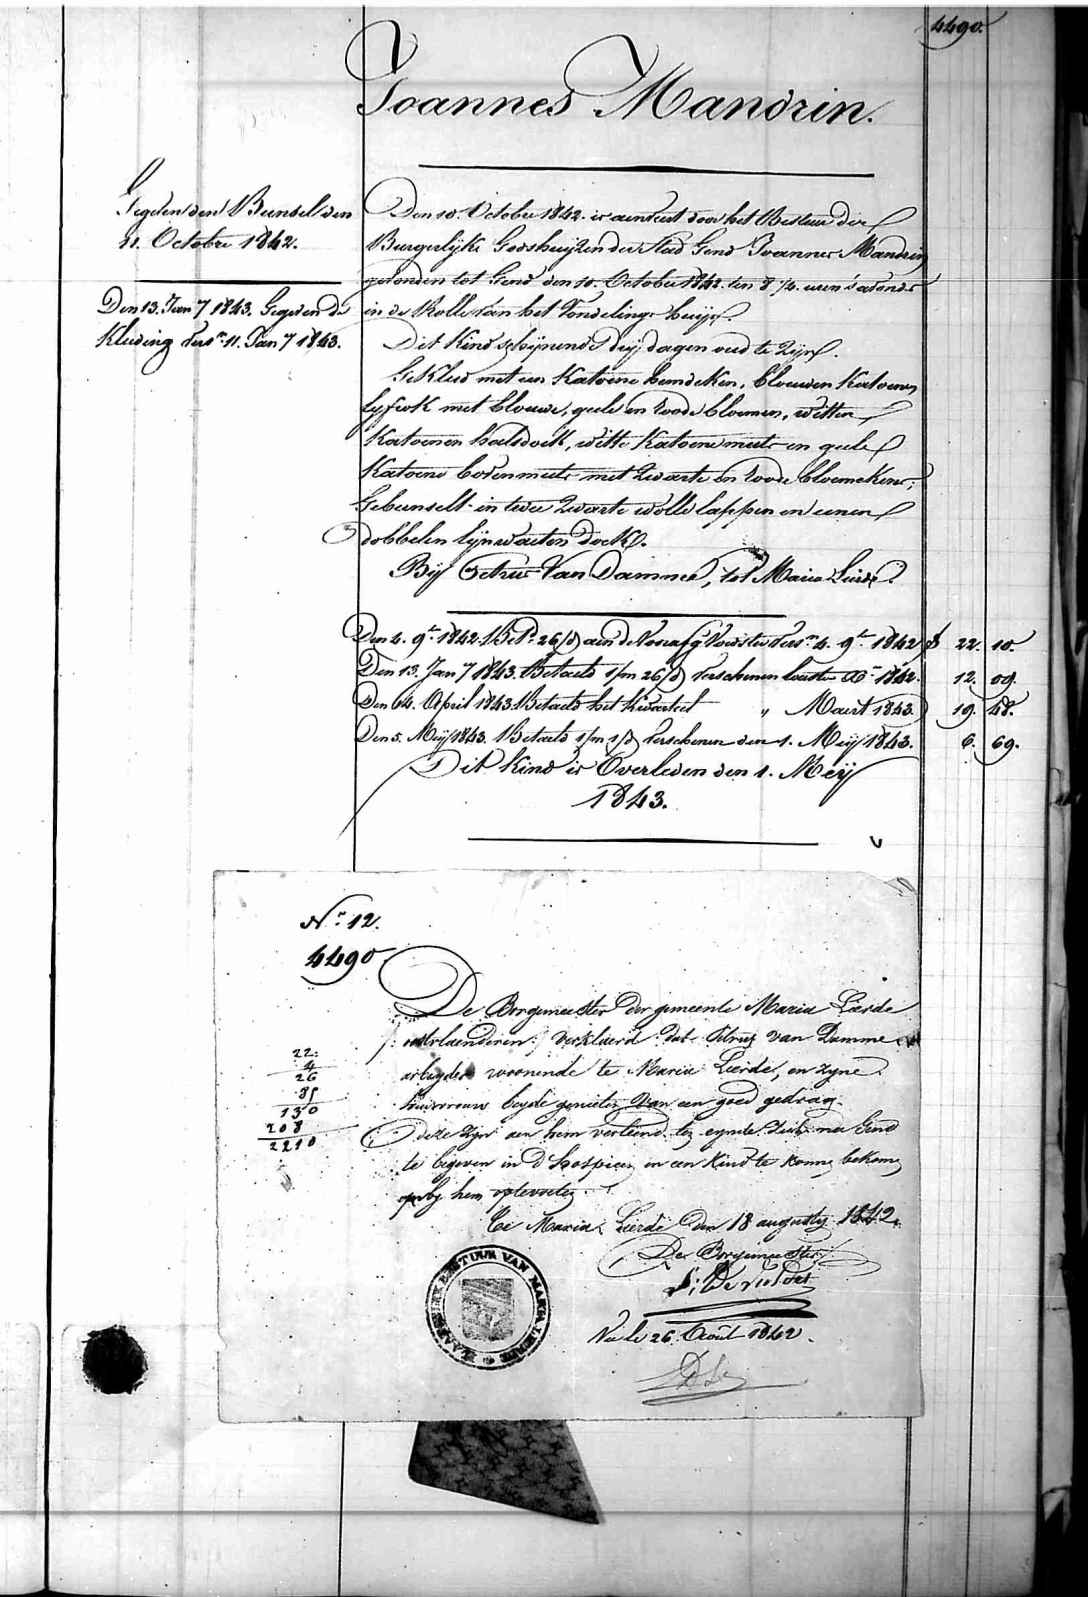 4490.
Joannes Mandrin.
Gegeven den Bunsel den
11. Octobre 1842.
Den 13. Jan 7 1843. Gegeven de
Kleeding vers.n 11. Jan 7 1843.
Den 10. October 1842. is aenveert door het Bestuur der
Burgerlijke Godshuijzen der stad Gend Joannes Mandrin
gevonden tot Gend den 10. October 1842. ten 8 1/4. uren s'avonds
in de Rolle van het Vondelings huijs.
Dit Kind schijnende drij dagen oud te Zijn.
Gekleed met een Katoene hemdeken, blauwen Katoenen
lijfrok met blouwe, geele en roode bloemen, witten
Katoenen halsdoek, witte Katoene muts en geele
Katoene bovenmuts met Zwarte en roode bloemekens;
Gebunselt in twee Zwarte wolle lappen en eenen
dobbelen lijnwaeten doek.
Bij Petrus Van Damme, tot Maria Lierde.
Den 4. 9.r 1842. Bet. 26/d aen de Voedster vers.n 4. 9.r 1842 22. 10.
Den 13. Jan 7 1843. Betaeld 1/m 26/d verschenen 1842. 12. 09.
Den 04. April 1843 Betaeld het Kwartael " Maert 1843. 19. 48.
Den 5. Meij 1843. Betaeld 1/m 1/d verschenen den 1. Meij 1843. 6. 69.
Dit Kind is Overleden den 1. Meij
1843.
N.r 12.
4490
De Borgemeester der gemeente Maria Lierde
oostvlaenderen verklaerd dat Petrus van Damme
arbeyder woonende te Maria Lierde, en zyne
huisvrouw beyde genieten van een goed gedrag.
deze zyn aen hem verleend ten eynde zich naer Gend
te begeven in d'hospicen en een kind te konnen bekomen
om by hem optevoeden.
22.
4
26
85
130
208
2210
Te Maria Lierde den 18 augusty 1842.
De Borgemeester
Vu le 26 Août 1842.
BESTUUR VAN MARIA LIERDE